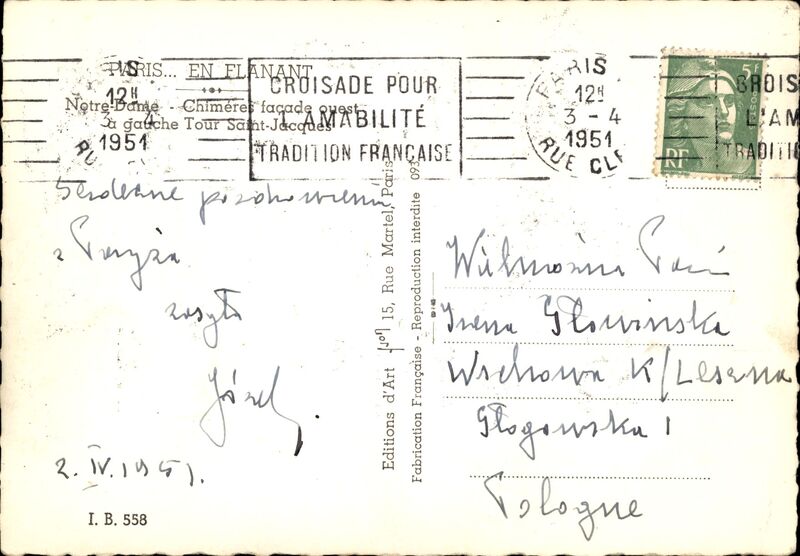 PARIS... EN FLANANT
Notre-Dame - Chimères façade ouest
à gauche Tour Saint-Jacques
12H
3 - 4
1951
CROISADE POUR
L'AMABILITÉ
TRADITION FRANÇAISE
PARIS
12H
3 - 4
1951
RUE CLE
5F
RF
CROIS
L'AM
TRADITI
Serdeczne pozdrowienia
z Paryża
zasyła
Józef.
2.IV.1951.
I. B. 558
Editions d'Art Yvon 15, Rue Martel, Paris
Fabrication Française - Reproduction interdite 093
Wielmożna Pani
Irena Głowinska
Wschowa K/Leszna
Głogowska 1
Pologne